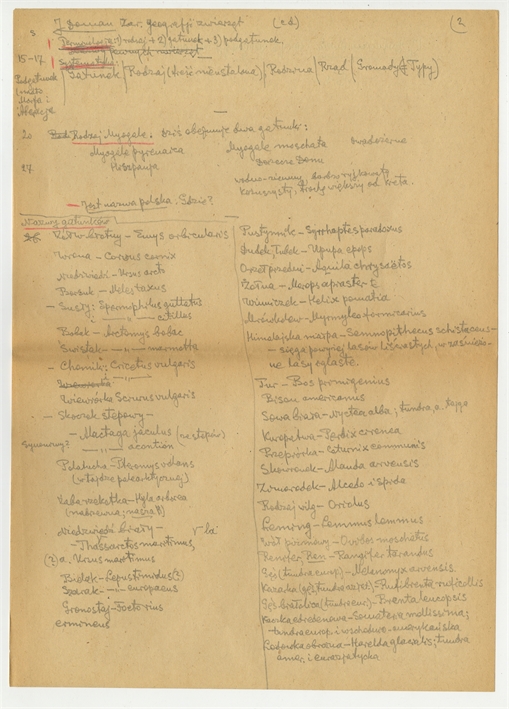 J. Domaniewski Zar. geografji zwierząt (c.d.) (2
1) rodzaj + 2) gatunek + 3) podgatunek
15-17. Systematyka:
Podgatunek / Gatunek / Rodzaj (dość nieustalone) / Rodzina / Rząd / Gromady / Typy
20 Rodzaj Myogale. Dziś obejmuje dwa gatunki:
Myogale pyrenaica Myogale moschata owadożerne
27 Hiszpania dorzecze Donu
wodno-ziemny, bardzo ryjkowaty
kosmaty, trochę większy od kreta.
– Jest nazwa polska. Gdzie?
Nazwy gatunków
Żółw błotny – Emys orbicularis
Wrona – Corvus cornix
Niedźwiedź – Ursus arctos
Borsuk – Meles taxus
– Susły: Spermophilus guttatus
" —"— citillus
Bobak – Arctomys bobac
Świstak – —"— marmotta
– Chomik: Cricetus vulgaris
Wiewiórka
Wiewiórka Sciurus vulgaris
– Skoczek stepowy –
– Alactaga jaculus (na stepów)
Synonimy? —"— acontion
Polatucha – Pteromys volans
(w tajdze palearktycznej)
Żaba rzekotka – Hyla arborea
(nadrzewna; nasza!!)
Niedźwiedź biały –
Thalassarctos maritimus,
(?) a. Ursus maritimus
Bielak – Lepus timidus (?)
Szarak – —"— europaeus
Gronostaj – Foetorius
ermineus
Pustynnik – Syrrhaptes paradoxus
Dudek, Dudek – Upupa epops
Orzeł przedni – Aquila chrysaëtos
Żołna – Merops apiaster L
Winniczek – Helix pomatia
Mrówkolew – Myrmyleo formicarius
Himalajska małpa – Semnopithecus schistaceus –
– sięga powyżej lasów liściastych, w zaśnieżone
lasy iglaste.
Tur – Bos primigenius
Bison americanus
Sowa biała – Nyctea alba; tundra, a. tajga
Kuropatwa – Perdix cinerea
Przepiórka – Coturnix communis
Skowronek – Alauda arvensis
Zimorodek – Alcedo ispida
Rodzaj wilg – Oriolus
Leming – Lemmus lemmus
Wół piżmowy – Ovibos moschatus
Renifer, Ren – Rangifer tarandus
Gęś (tundra europ.) – Melanonyx arvensis
Kazarka (gęś, tundra azjat.) – Rufibrenta ruficollis
Gęś białolica (tundra eur.) – Branta leucopsis
Kaczka edredonowa – Somateria mollissima;
tundra europ. i wschodnio-amerykańska
Lodówka obrana – Harelda glacialis; tundra
amer. i eurazjatycka